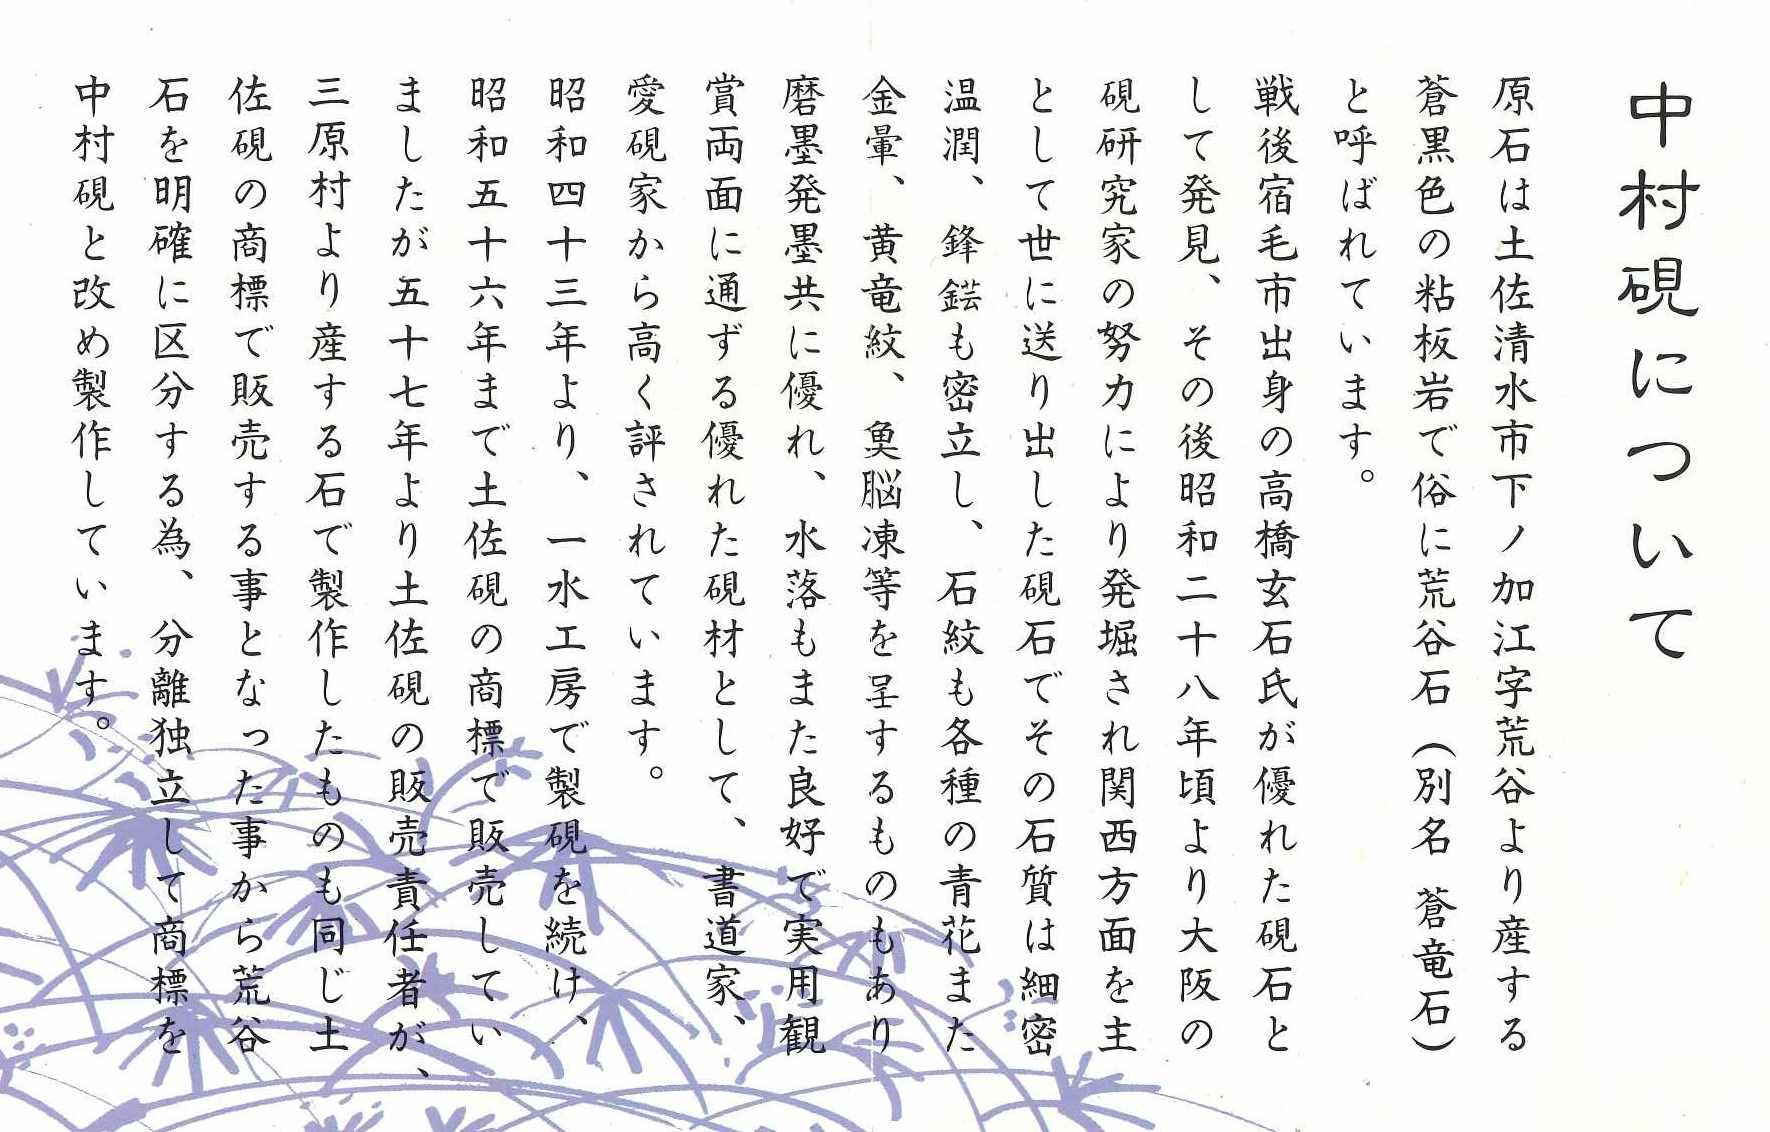 中村硯について
原石は土佐清水市下ノ加江字荒谷より産する
蒼黒色の粘板岩で俗に荒谷石（別名 蒼竜石）
と呼ばれています。
戦後宿毛市出身の高橋玄石氏が優れた硯石と
して発見、その後昭和二十八年頃より大阪の
硯研究家の努力により発堀され関西方面を主
として世に送り出した硯石でその石質は細密
温潤、鋒鋩も密立し、石紋も各種の青花また
金暈、黄竜紋、魚脳凍等を呈するものもあり
磨墨発墨共に優れ、水落もまた良好で実用観
賞両面に通ずる優れた硯材として、書道家、
愛硯家から高く評されています。
昭和四十三年より、一水工房で製硯を続け、
昭和五十六年まで土佐硯の商標で販売してい
ましたが五十七年より土佐硯の販売責任者が、
三原村より産する石で製作したものも同じ土
佐硯の商標で販売する事となった事から荒谷
石を明確に区分する為、分離独立して商標を
中村硯と改め製作しています。